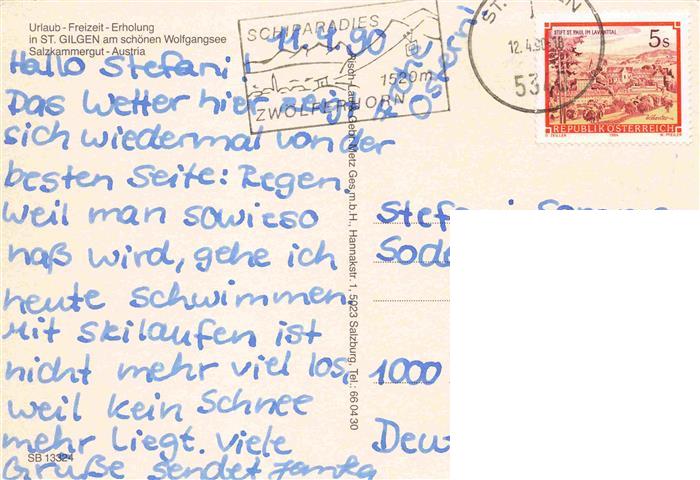 Urlaub - Freizeit - Erholung
in ST. GILGEN am schönen Wolfgangsee
Salzkammergut - Austria
SCHIPARADIES
1520m
ZWÖLFERHORN
12.4.90
STIFT ST. PAUL IM LAVANTTAL
5s
REPUBLIK ÖSTERREICH
11.4.90
Hallo Stefani!
Das Wetter hier zeigt
sich wiedermal von der
besten Seite: Regen.
Weil man sowieso
naß wird, gehe ich
heute schwimmen.
Mit Skilaufen ist
nicht mehr viel los,
weil kein Schnee
mehr liegt. Viele
Grüße sendet
Frohe
Ostern!
Metz Ges.m.b.H., Hannakstr. 1, 5023 Salzburg, Tel.: 66 04 30
1000
SB 13324